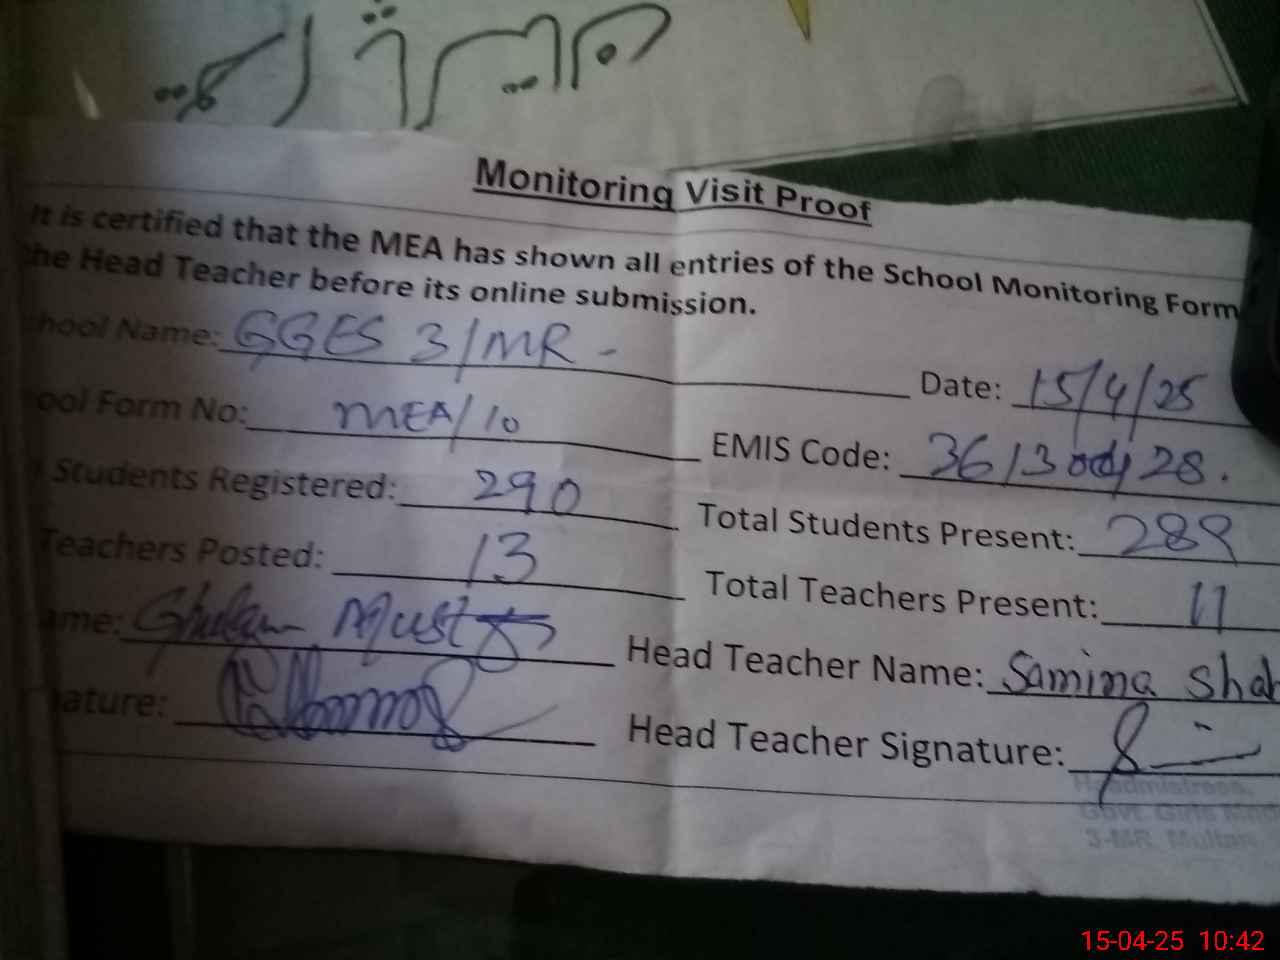 Monitoring Visit Proof
It is certified that the MEA has shown all entries of the School Monitoring Form
the Head Teacher before its online submission.
hool Name: GGES 3/MR - Date: 15/4/25
ool Form No: MEA/10 EMIS Code: 3613 28.
Students Registered: 290 Total Students Present: 289
Teachers Posted: 13 Total Teachers Present: 11
ame: Ghulam Head Teacher Name: Samina Shah
nature: Head Teacher Signature:
Headmistress,
Govt. Girls
3-MR, Multan
15-04-25 10:42